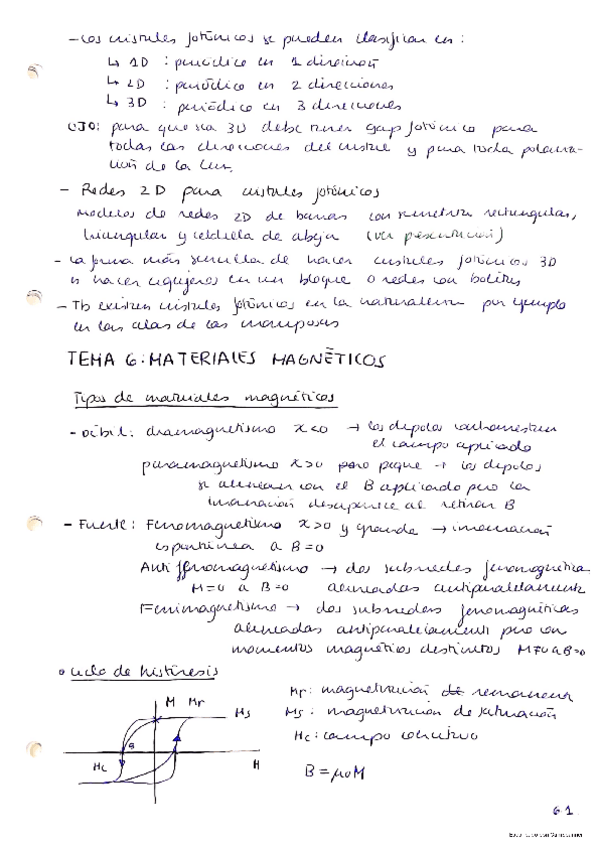 - Los cristales fotónicos se pueden clasificar en:
↳ 1D : periódico en 1 dirección
↳ 2D : periódico en 2 direcciones
↳ 3D : periódico en 3 direcciones
OJO: para que sea 3D debe tener gap fotónico para
todas las direcciones del cristal y para toda polariza-
ción de la luz.
- Redes 2D para cristales fotónicos
Modelos de redes 2D de barras con simetría rectangular,
triangular y celdilla de abeja (ver presentación)
- La forma más sencilla de hacer cristales fotónicos 3D
es hacer agujeros en un bloque o redes con bolitas
- Tb existen cristales fotónicos en la naturaleza por ejemplo
en las alas de las mariposas
TEMA 6: MATERIALES MAGNÉTICOS
Tipos de materiales magnéticos
- Débil: diamagnetismo x<0 → los dipolos contrarrestan
el campo aplicado
paramagnetismo x>0 pero peque → los dipolos
se alinean con el B aplicado pero la
imanación desaparece al retirar B
- Fuerte: Ferromagnetismo x>0 y grande → imanación
espontánea a B=0
Antiferromagnetismo → dos subredes ferromagnética
M=0 a B=0 alineadas antiparalelamente
Ferrimagnetismo → dos subredes ferromagnéticas
alineadas antiparalelamente pero con
momentos magnéticos distintos M≠0 a B=0
• Ciclo de histéresis
M Mr
Ms
Hc
H
Mr: magnetización de remanencia
Ms: magnetización de saturación
Hc: campo coercitivo
B = μ0M
6.1